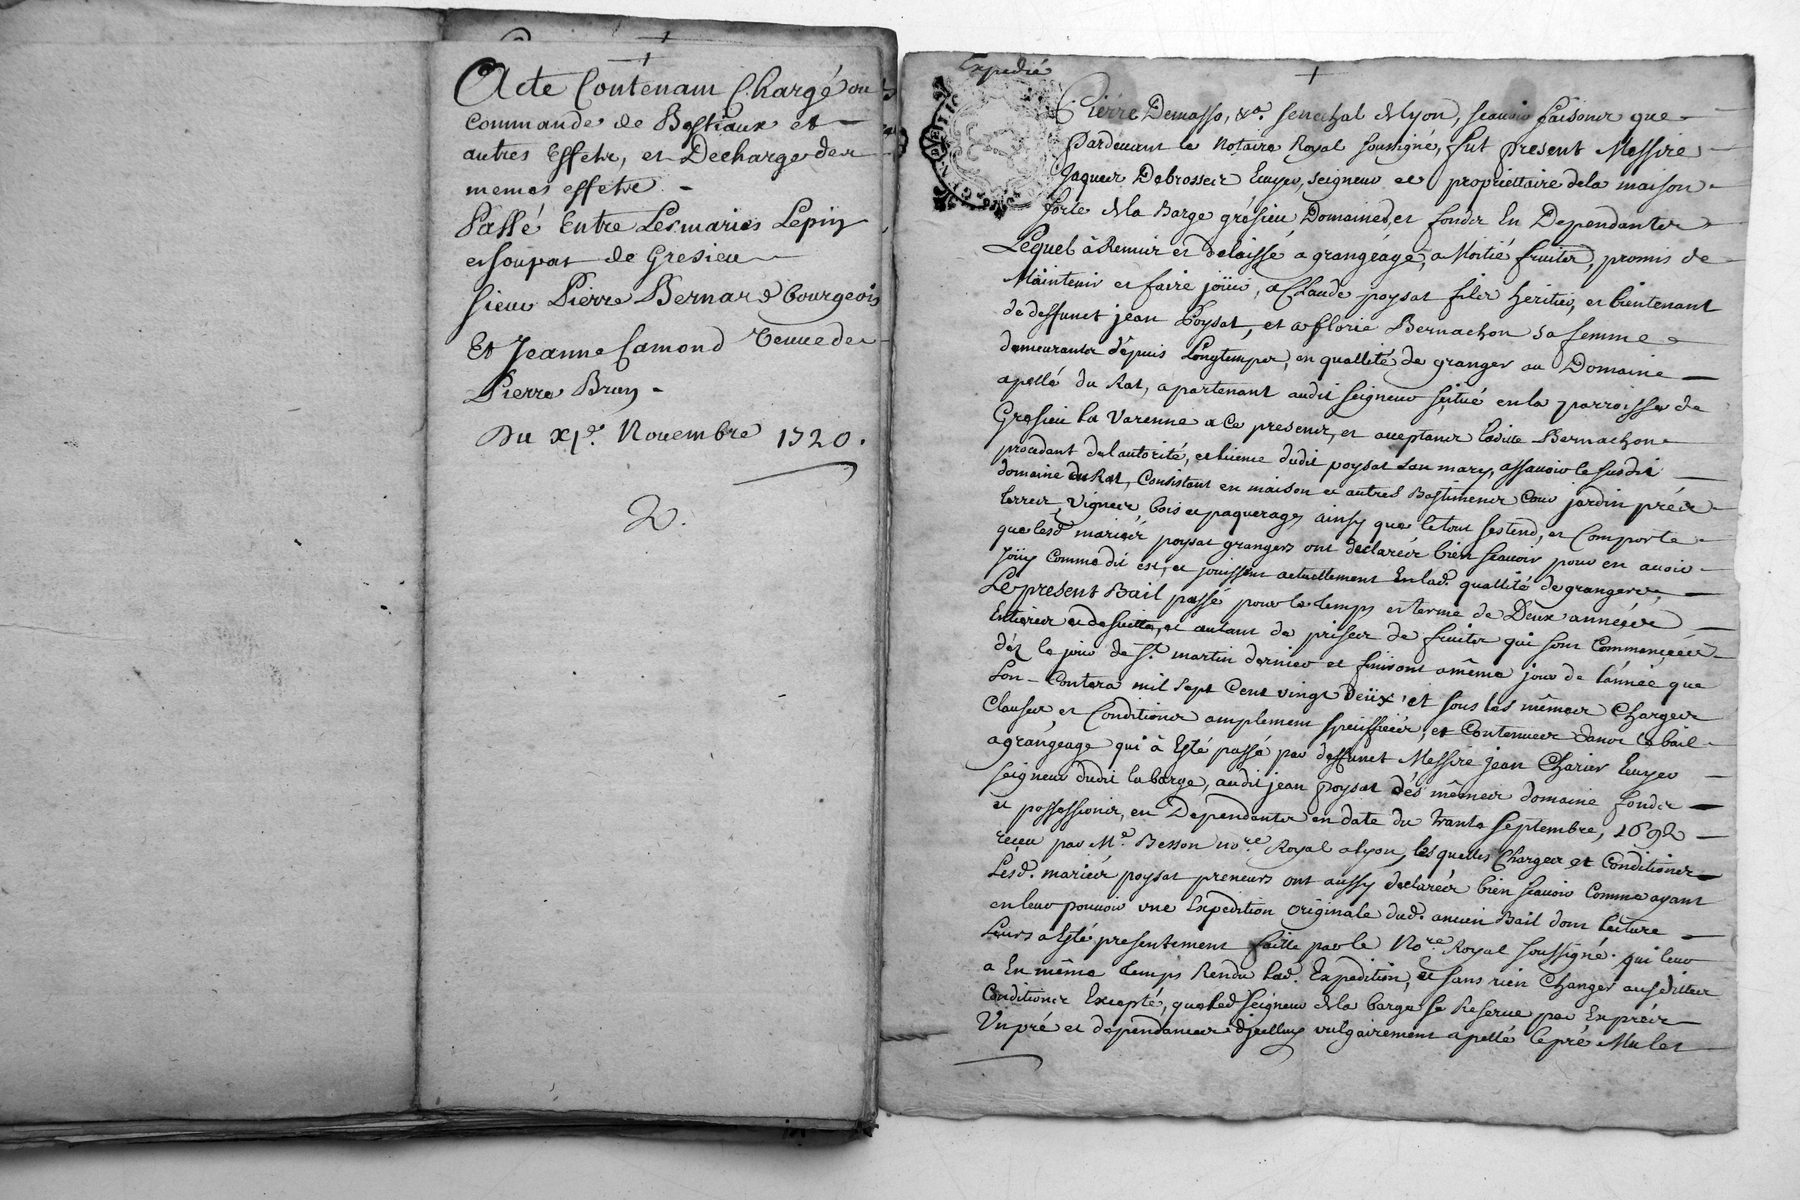 Acte Contenant Chargé ou
commande de Bestiaux et
autres Effets, et Decharge des
memes effets
Passé Entre Les mariés Lepin
et soupat de Gresieu
sieur Pierre Bernard bourgeois
Et Jeanne Camond veuve de
Pierre Brun
Du xie. Novembre 1720.
2.
Expedié
Pierre Demasso, &a. senechal de lyon, scavoir faisons que
Pardevant le Notaire Royal soussigné, fut present Messire
Jaques Debrosses Ecuyer, seigneur et propriettaire dela maison
forte de la Barge grésieu, Domaines, et fonds En Dependants
Lequel à Remis et delaissé a grangéage, a Moitié fruits, promis de
Maintenir et faire joüir, a Claude poysat fils heritier, et bientenant
de deffunct jean Poysat, et a florie Bernachon sa femme
demeurants depuis Longtemps, en quallité de granger au Domaine
apellé du Rat, apartenant audit seigneur, scitué en la parroisse de
Gresieu la Varenne a ce presents, et acceptants laditte Bernachon
procedant de l'autorité, et licence dudit poysat son mary, assavoir le susdit
domaine du Rat, Consistant en maison et autres Bastiments Cour jardin prés
terres, vignes, bois et paquerages ainsy que le tout sestend, et Comporte
que lesd. mariés poysat grangers ont declarés bien scavoir pour en avoir
Joüy Comme dit est, et jouissent actuellement En lad. quallité de grangers,
Le present Bail passé pour le temps et terme de Deux années
Entieres et desuitte, et autant de prises de fruits qui sont Commencées
déz le jour de St. martin dernier et finiront a même jour de lannée que
Lon Contera mil sept Cent vingt Deüx, et sous les mêmes Charges
Clauses, et Conditions amplement speciffiées, et Contenues dans le bail
a grangeage qui à Esté passé par deffunct Messire jean Charier Ecuyer
seigneur dudit la barge, audit jean poysat dés mêmes domaine fonds
et possessions, en Dependants en date du trante septembre, 1692
receu par Me. Besson nore. Royal a lyon, lesquelles Charges et Conditions
Lesd. mariés poysat preneurs ont aussy declarés bien scavoir Comme ayant
en leur pouvoir une Expedition originale dud. ancien Bail dont lecture
Leurs a Esté presentement faitte par le Nore. Royal soussigné. qui leur
a En même temps Rendu lad. Expedition, et sans rien Changer ausdittes
Conditions Excepté, que led. seigneur de la barge se Reserve par Exprés
Un pré et dependances d'jcelluy vulgairement apellé le pré Mulet